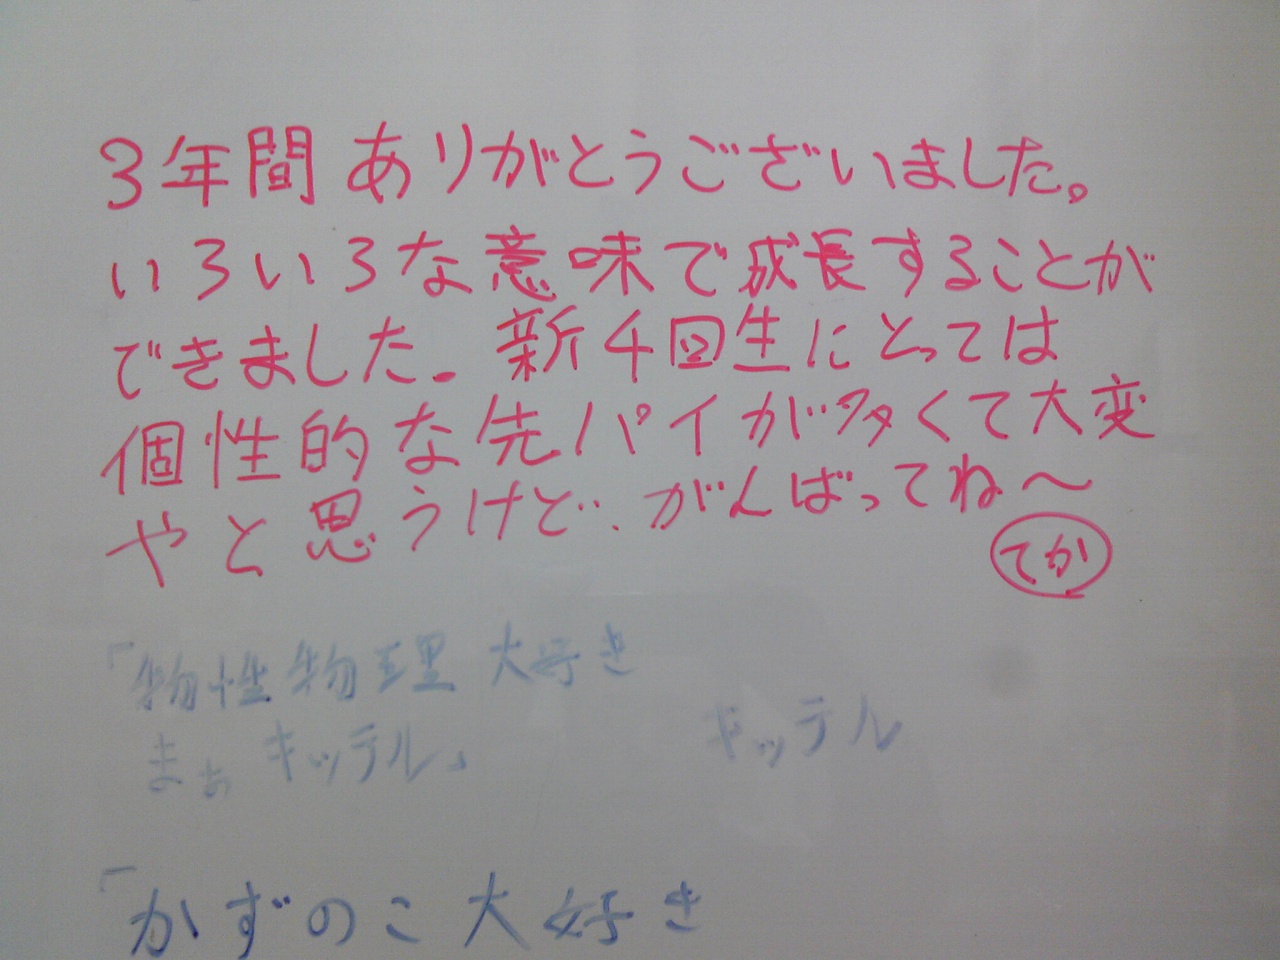 3年間ありがとうございました。
いろいろな意味で成長することが
できました。新4回生にとっては
個性的な先パイが多くて大変
やと思うけど… がんばってね〜
てか
「物性物理 大好き
まぁ キッテル」
キッテル
「かずのこ大好き